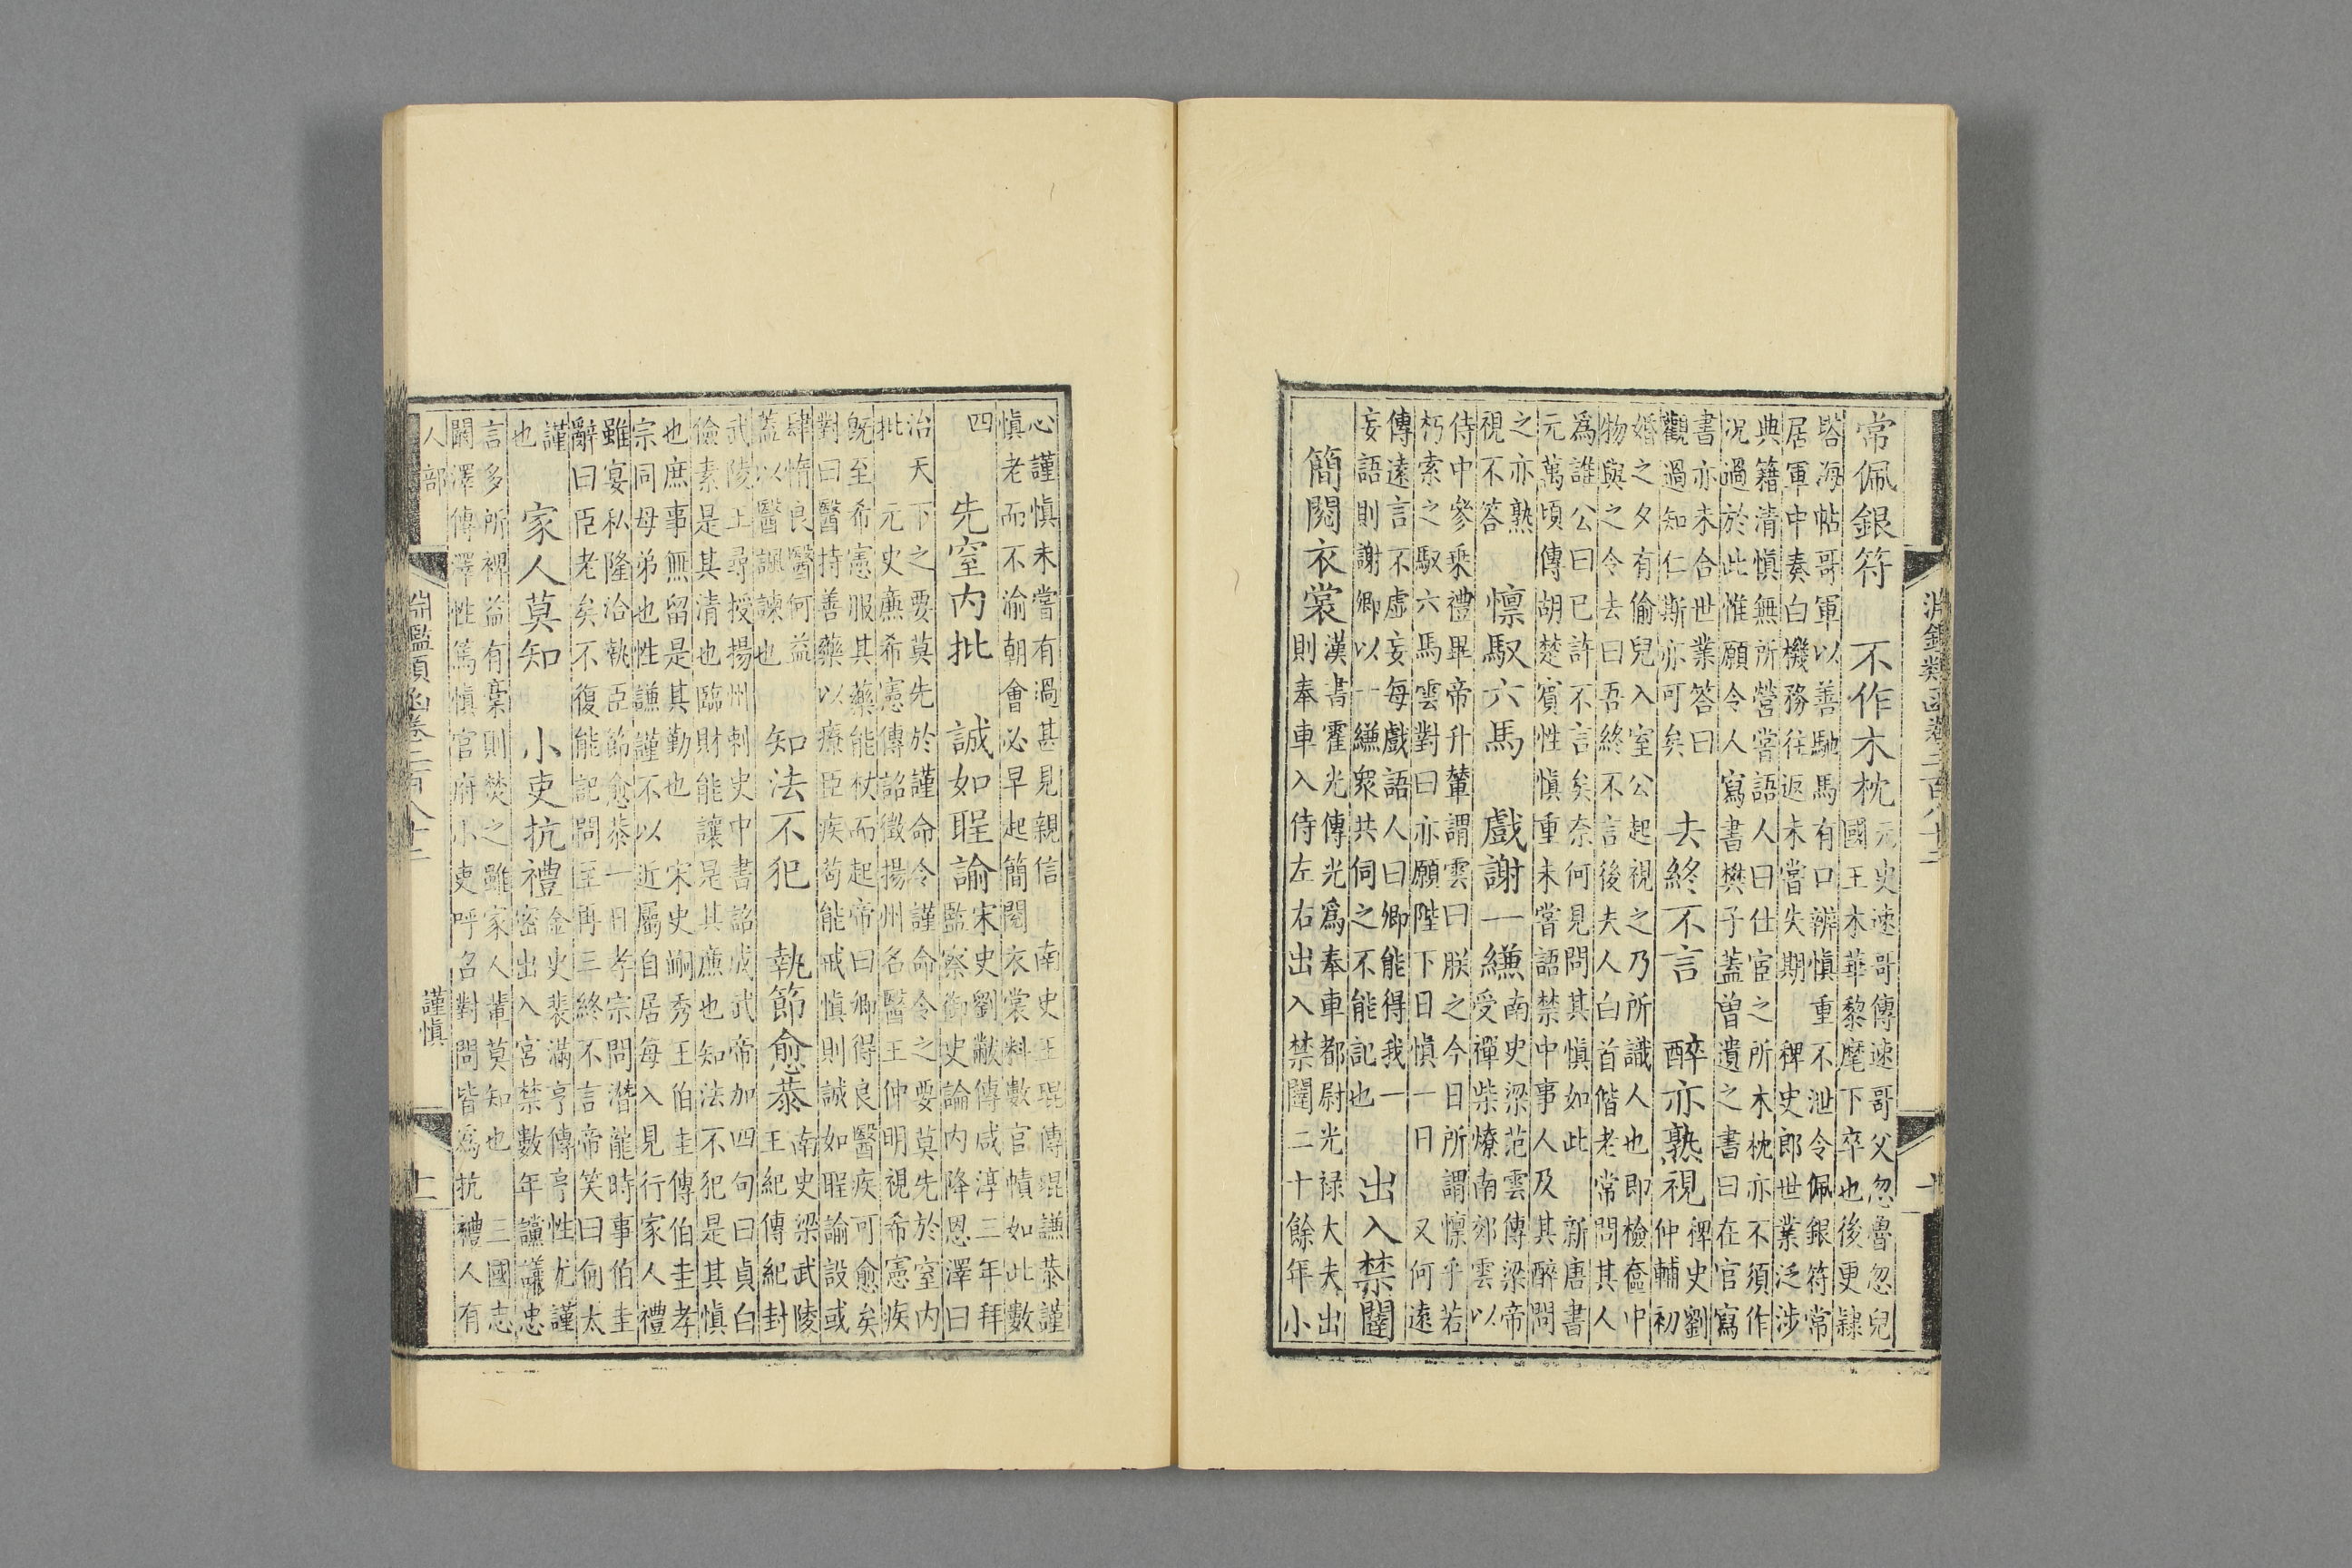 淵鑑類函卷二百八十二
十
常佩銀符 不作木枕
元史速哥傳速哥父忽魯忽兒
國王木華黎麾下卒也後更隸
塔海帖哥軍以善馳馬有口辨慎重不泄令佩銀符常
居軍中奏白機務往返未嘗失期 稗史郎世業泛涉
典籍清慎無所營嘗語人曰仕宦之所木枕亦不須作
況過於此惟願令人寫書樊子蓋曾遺之書曰在官寫
書亦未合世業答曰
觀過知仁斯亦可矣
去終不言 醉亦熟視
稗史劉
仲輔初
婚之夕有偷兒入室公起視之乃所識人也即檢奩中
物與之令去曰吾終不言後夫人白首偕老常問其人
爲誰公曰已許不言矣奈何見問其慎如此 新唐書
元萬頃傳胡楚賓性慎重未嘗語禁中事人及其醉問
之亦熟
視不答
懍馭六馬 戲謝一縑
南史梁范雲傳梁帝
受禪柴燎南郊雲以
侍中參乘禮畢帝升輦謂雲曰朕之今日所謂懍乎若
朽索之馭六馬雲對曰亦願陛下日慎一日 又何遠
傳遠言不虛妄每戲語人曰卿能得我一
妄語則謝卿以一縑眾共伺之不能記也
出入禁闥
簡閱衣裳
漢書霍光傳光爲奉車都尉光祿大夫出
則奉車入侍左右出入禁闥二十餘年小
心謹慎未嘗有過甚見親信 南史王琨傳琨謙恭謹
慎老而不渝朝會必早起簡閱衣裳料數官幘如此數
四
先窒內批 誠如聖諭
宋史劉黻傳咸淳三年拜
監察御史論內降恩澤曰
治天下之要莫先於謹命令謹命令之要莫先於窒內
批 元史廉希憲傳詔徵揚州名醫王仲明視希憲疾
既至希憲服其藥能杖而起帝曰卿得良醫疾可愈矣
對曰醫持善藥以療臣疾苟能戒慎則誠如聖諭設或
肆惰良醫何益
蓋以醫諷諫也
知法不犯 執節愈恭
南史梁武陵
王紀傳紀封
武陵王尋授揚州刺史中書詔成武帝加四句曰貞白
儉素是其清也臨財能讓是其廉也知法不犯是其慎
也庶事無留是其勤也 宋史嗣秀王伯圭傳伯圭孝
宗同母弟也性謙謹不以近屬自居每入見行家人禮
雖宴私隆洽執臣節愈恭一日孝宗問潛龍時事伯圭
辭曰臣老矣不復能記問至再三終不言帝笑曰何太
謹
也
家人莫知 小吏抗禮
金史裴滿亨傳亨性尤謹
密出入宮禁數年讜議忠
言多所裨益有稾則焚之雖家人輩莫知也 三國志
闞澤傳澤性篤慎官府小吏呼名對問皆爲抗禮人有
人部
淵鑑類函卷二百八十二
謹慎
十一